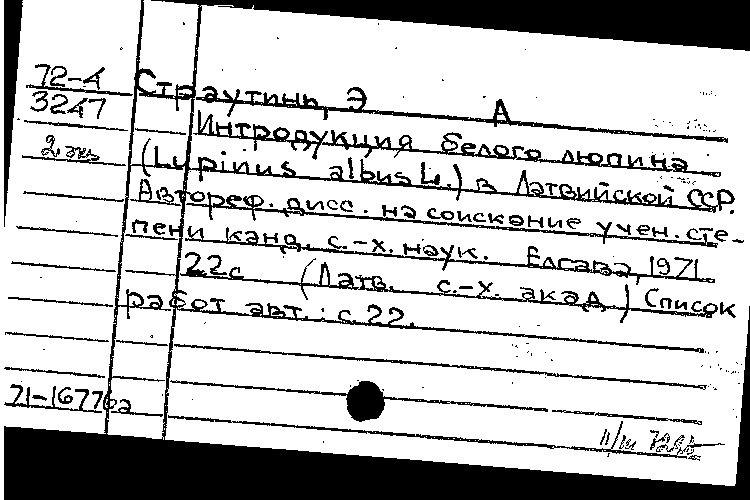 72-4
3247
2 экз
Страутинь, Э А
Интродукция белого люпина
(Lupinus albus L.) в Латвийской ССР.
Автореф. дисс. на соискание учен. сте-
пени канд. с.-х. наук. Елгава, 1971
22с (Латв. с.-х. акад.) Список
работ авт.: с.22.
71-16776а